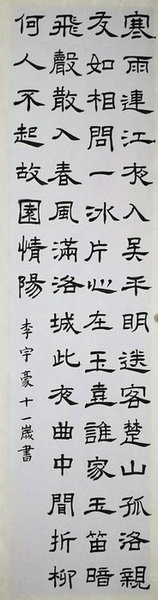 寒雨連江夜入吴平明送客楚山孤洛親
友如相問一冰片心在玉壺誰家玉笛暗
飛聲散入春風滿洛城此夜曲中聞折柳
何人不起故園情陽
李宇豪十一歲書